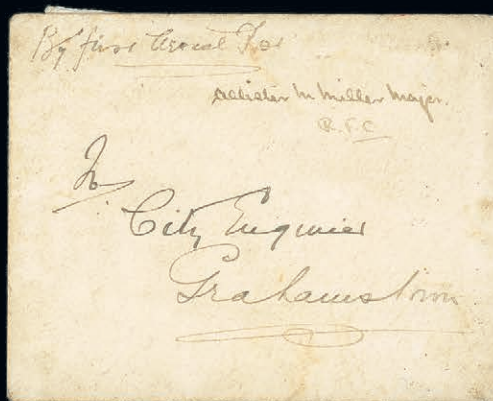 By first Aerial Pos
Allister M Miller Major.
R.F.C
To
City Enginier
Grahamstown